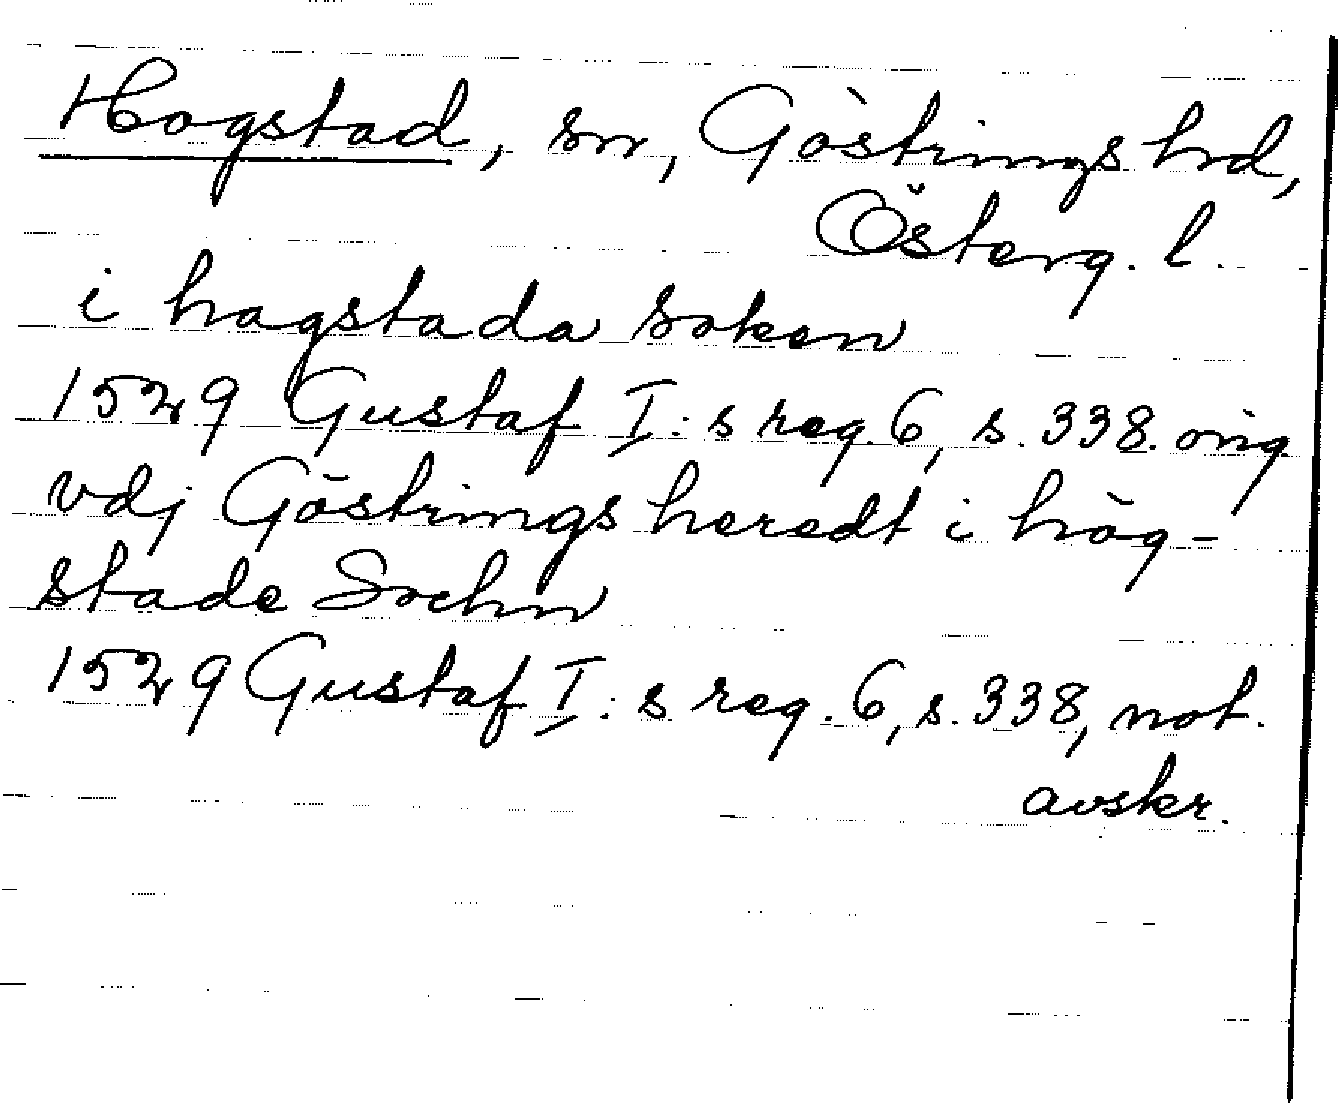 Hogstad, sn, Göstrings hrd,
Österg. l.
i hagstada soken
1529 Gustaf I:s reg. 6, s. 338. orig
vdj Göstrings heredt i hög-
stade Sochn
1529 Gustaf I:s reg. 6, s. 338, not.
avskr.